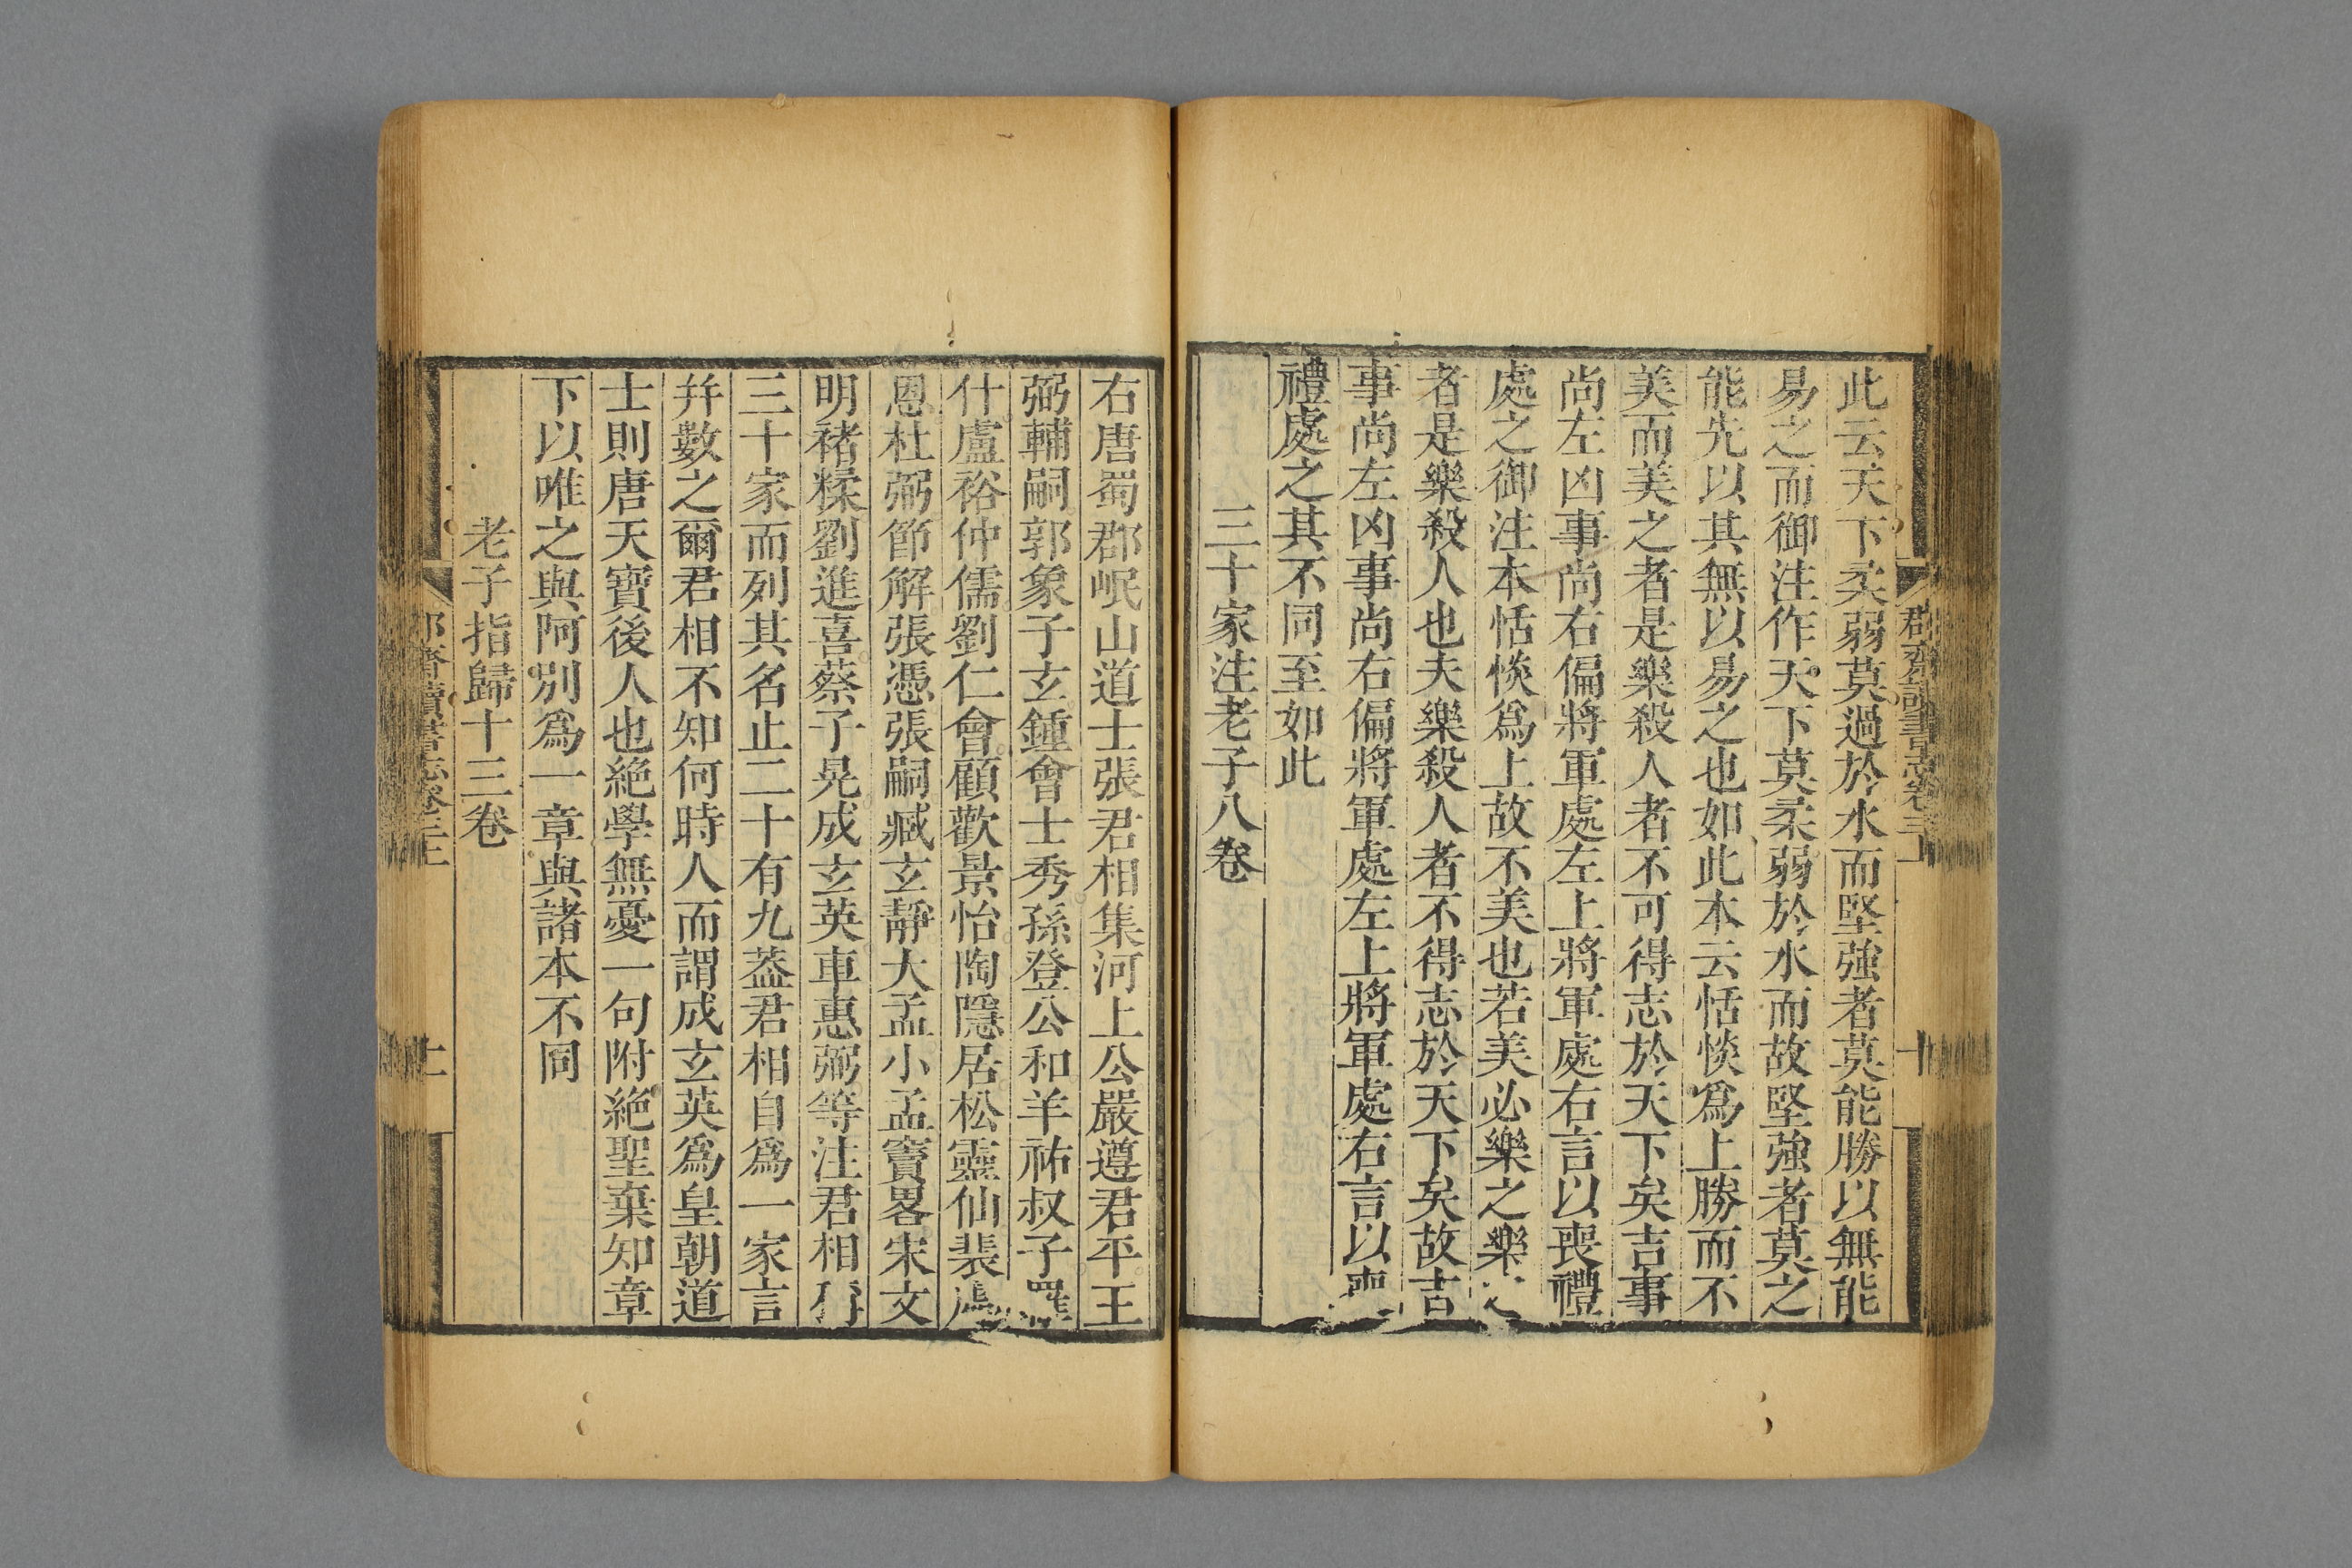 此云天下柔弱莫過於水而堅強者莫能勝以無能
易之而御注作天下莫柔弱於水而故堅強者莫之
能先以其無以易之也如此本云恬惔爲上勝而不
美而美之者是樂殺人者不可得志於天下矣吉事
尚左凶事尚右偏將軍處左上將軍處右言以喪禮
處之御注本恬惔爲上故不美也若美必樂之樂之
者是樂殺人也夫樂殺人者不得志於天下矣故吉
事尚左凶事尚右偏將軍處左上將軍處右言以喪
禮處之其不同至如此
三十家注老子八卷
右唐蜀郡岷山道士張君相集河上公嚴遵君平王
弼輔嗣郭象子玄鍾會士秀孫登公和羊祐叔子羅
什盧裕仲儒劉仁會顧歡景怡陶隱居松靈仙裴處
恩杜弼節解張憑張嗣臧玄靜大孟小孟竇畧宋文
明褚糅劉進喜蔡子晃成玄英車惠弼等注君相稱
三十家而列其名止二十有九葢君相自爲一家言
幷數之爾君相不知何時人而謂成玄英爲皇朝道
士則唐天寶後人也絕學無憂一句附絕聖棄知章
下以唯之與阿別爲一章與諸本不同
老子指歸十三卷